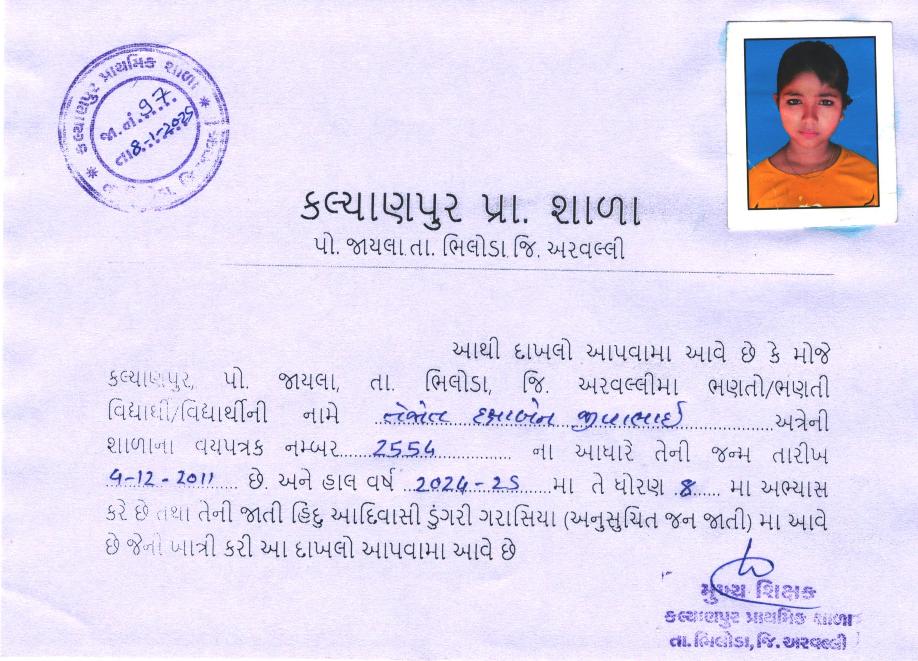 કલ્યાણપુર પ્રાથમિક શાળા
જા.નં. 97
તા 8-1-2025
કલ્યાણપુર પ્રા. શાળા
પો. જાયલા તા. ભિલોડા જિ. અરવલ્લી
આથી દાખલો આપવામા આવે છે કે મોજે
કલ્યાણપુર, પો. જાયલા, તા. ભિલોડા, જિ. અરવલ્લીમા ભણતો/ભણતી
વિદ્યાર્થી/વિદ્યાર્થીની નામે અત્રેની
શાળાના વયપત્રક નમ્બર 2554 ના આધારે તેની જન્મ તારીખ
4-12-2011 છે. અને હાલ વર્ષ 2024-25 મા તે ધોરણ 8 મા અભ્યાસ
કરે છે તથા તેની જાતી હિંદુ આદિવાસી ડુંગરી ગરાસિયા (અનુસુચિત જન જાતી) મા આવે
છે જેનો ખાત્રી કરી આ દાખલો આપવામા આવે છે
મુખ્ય શિક્ષક
કલ્યાણપુર પ્રાથમિક શાળા
તા. ભિલોડા, જિ. અરવલ્લી